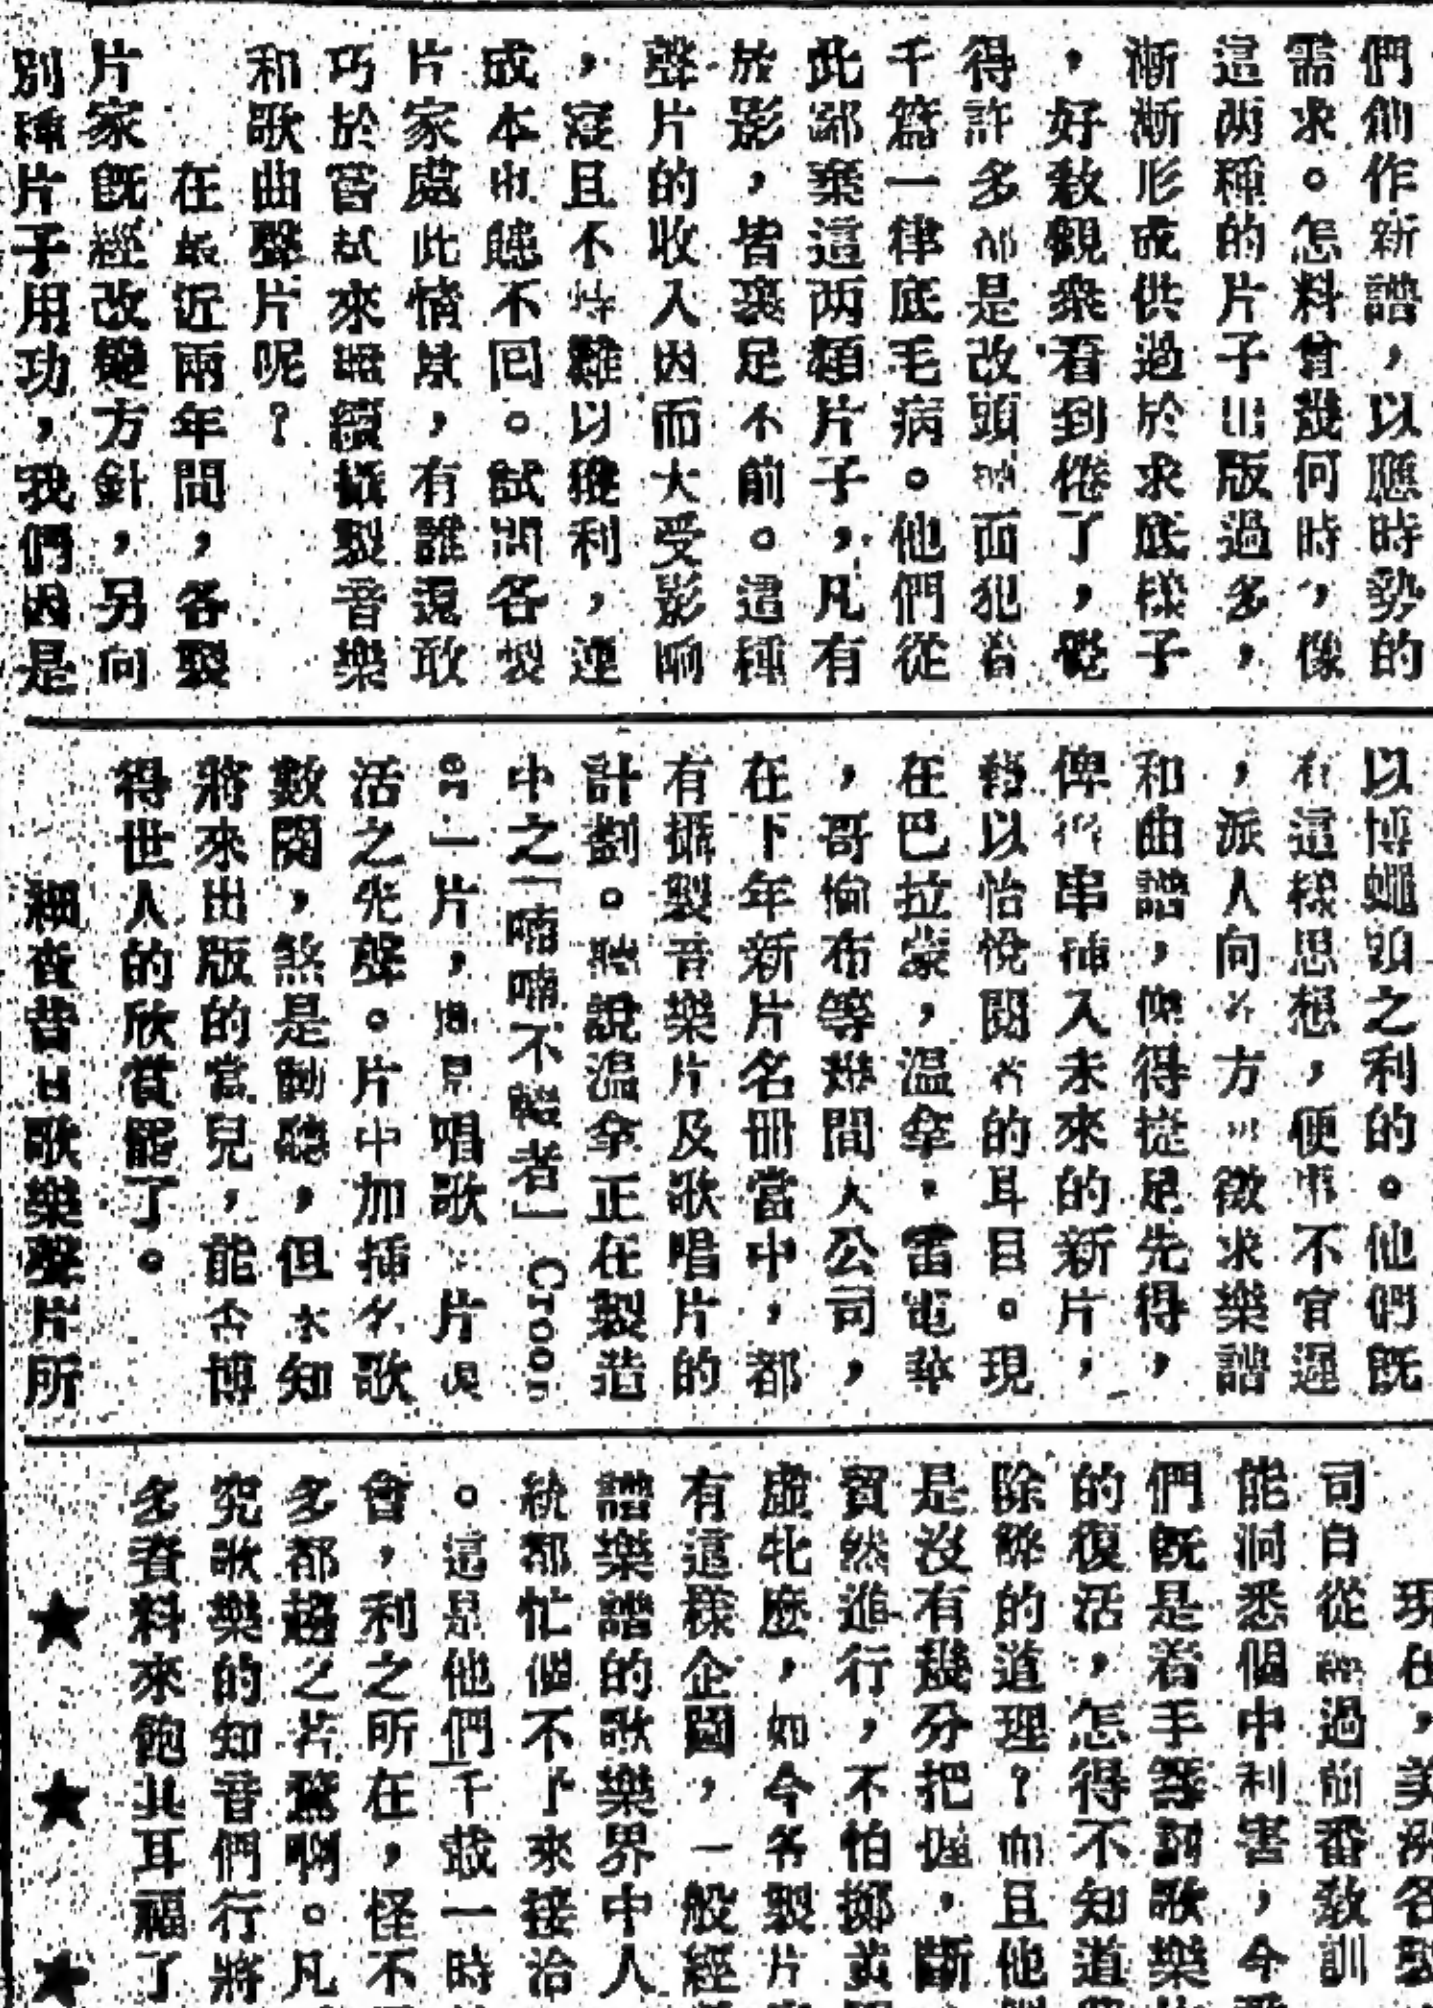 們創作新譜，以應時勢的
需求。怎料曾幾何時，像
這兩種的片子出版過多，
漸漸形成供過於求底樣子
，好教觀衆看到倦了，覺
得許多都是改頭換面犯着
千篇一律底毛病。他們從
此鄙棄這两類片子，凡有
放影，皆裹足不前。這種
聲片的收入因而大受影响
，寔且不特難以獲利，連
成本也聽不囘。試問各製
片家處此情景，有誰還敢
巧於嘗試來繼續攝製音樂
和歌曲聲片呢？
在最近兩年間，各製
片家旣經改變方針，另向
別種片子用功，我們因是
以博蠅頭之利的。他們旣
有這樣思想，便事不宜遲
，派人向各方面徵求樂譜
和曲譜，俾得捷足先得，
俾得串插入未來的新片，
藉以怡悅閱者的耳目。現
在巴拉蒙，温拿，雷電華
，哥倫布等幾間大公司，
在下年新片名冊當中，都
有攝製音樂片及歌唱片的
計劃。聽說温拿正在製造
中之「喃喃不輟者」Croon
er一片，唱歌片復
活之先聲。片中加插名歌
數闋，煞是動聽，但未知
將來出版的當兒，能否博
得世人的欣賞罷了。
細查昔日歌樂聲片所
現在，美洲各
司自從經過前番敎訓
能洞悉個中利害，今
們旣是着手籌劃歌樂
的復活，怎得不知道
除弊的道理？而且他
是沒有幾分把握，斷
貿然進行，不怕擲黃
虛牝麽，如今各製片
有這樣企圖，一般經
譜樂譜的歌樂界中人
統都忙個不了來接洽
。這是他們千載一時
會，利之所在，怪不
多都趨之若鶩啊。凡
究歌樂的知音們行將
多資料來飽其耳福了
★　★　★